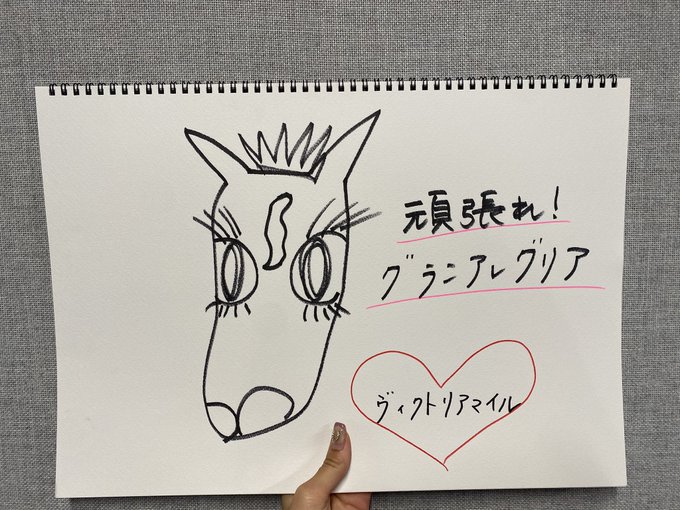 頑張れ!
グランアレグリア
ヴィクトリアマイル